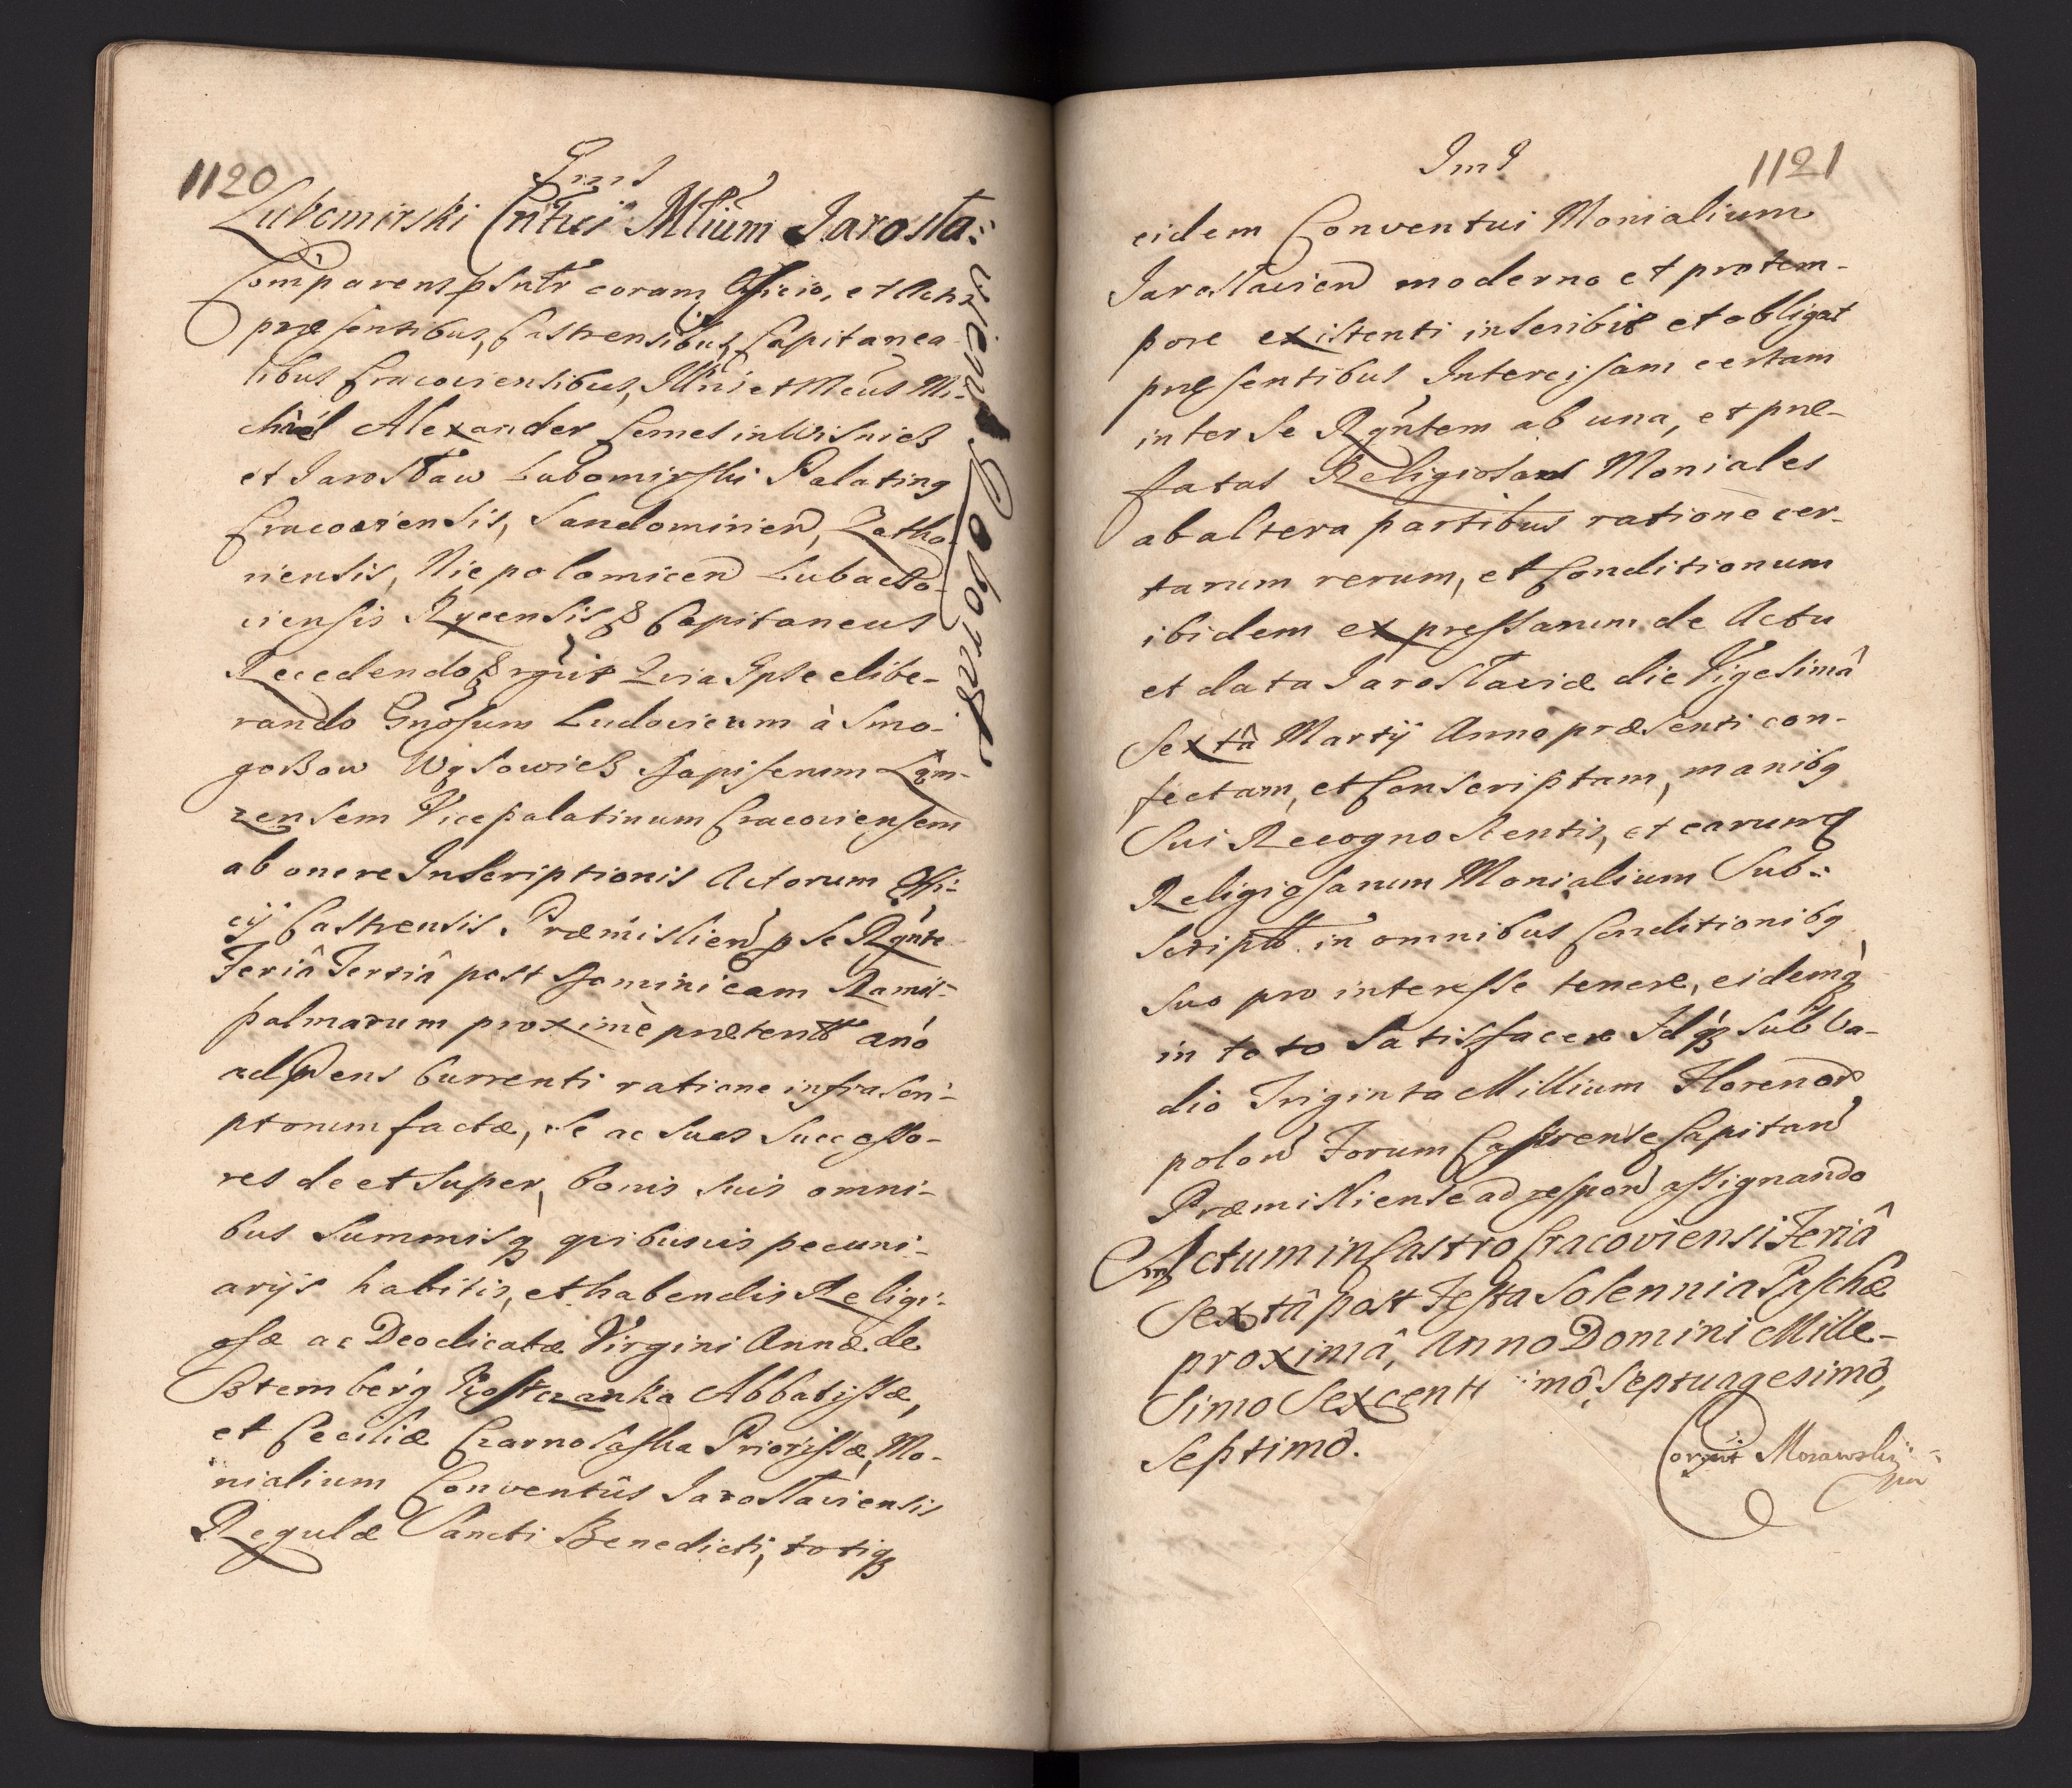 1120
Lubomirski Cntui Mlium Jarosla:
viens Roborat
Comparens psntr coram Officio, et Actis
præsentibus, Castrensibus Capitanea
libus Cracoviensibus, Illris et Mcus Mi-
chael Alexander Comes in Wisnicz
et Jarosław Lubomirski Palating
Cracoviensis, Sandomirien, Zatho-
riensis, Niepolomicen Lubaczo-
viensis Rycensis Capitaneus
Recedendo rgvit Quia Ipse elibe-
rando Gnosum Ludovicum à Smo-
goszow Wąsowicz Dapiferum Łom-
zensem Vicepalatinum Cracoviensem
ab onere Inscriptionis Actorum Offi-
cij Castrensis Præmislien p se Rgnte
Feriâ Tertiâ post Dominicam Ramis-
palmarum proximè præterit anó
ad pñens Currenti ratione infrascri-
ptorum factæ, se ac suos Successo-
res de et super, bonis suis omni-
bus Summisq quibusvis pecuni-
arijs habitis, et habendis Religi-
osæ ac Deodicatæ Virgini Annæ de
Sztemberg Kostczanka Abbatissæ,
et Ceciliæ Czarnoláska Priorissæ Mo-
nialium Conventûs Jarosłáviensis
Regulæ Sancti Benedicti, totiq
1121
eidem Conventui Monialium
Jaroslavien moderno et protem-
pore existenti inscribit et obligat
præsentibus Intercisam certam
inter se Rgntem ab una, et præ-
fatas Religiosas Moniales
ab altera partibus ratione cer-
tarum rerum, et Conditionum
ibidem expressarum de Actu
et data Jaroslaviæ die Vigesimâ
Sextâ Martij Anno præsenti con-
fectam, et Conscriptam, manibq
Sui Recognoscentis, et earumq
Religiosarum Monialium Sub:
script in omnibus Conditionibq
suo pro interesse tenere, eidemq
in toto Satisfacere Idq sub Va-
dio Triginta Millium Florenor
polon Forum Castrense Capitan
Præmisliense ad respon assignando
Actum in Castro Cracoviensi Feriâ
Sextâ post Festa Solennia Paschæ
proximâ, Anno Domini Mille-
simo Sexcent imô, Septuagesimô,
Septimô.
Corxit Morawsky